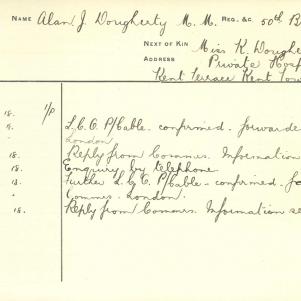 NAME Alan J. Dougherty M.M. REG. &C. 50th B
NEXT OF KIN Miss K. Doughe
ADDRESS Private Hosp
Kent Terrace Kent Tow
18. 1/P L.C.O. P/Cable. confirmed. Forwarde
London
18. Reply from Commrs. Information
18. Enquiry by telephone
18. Further L.C.O. P/Cable - confirmed. Fo
" Commrs. London.
18. Reply from Commrs. Information se